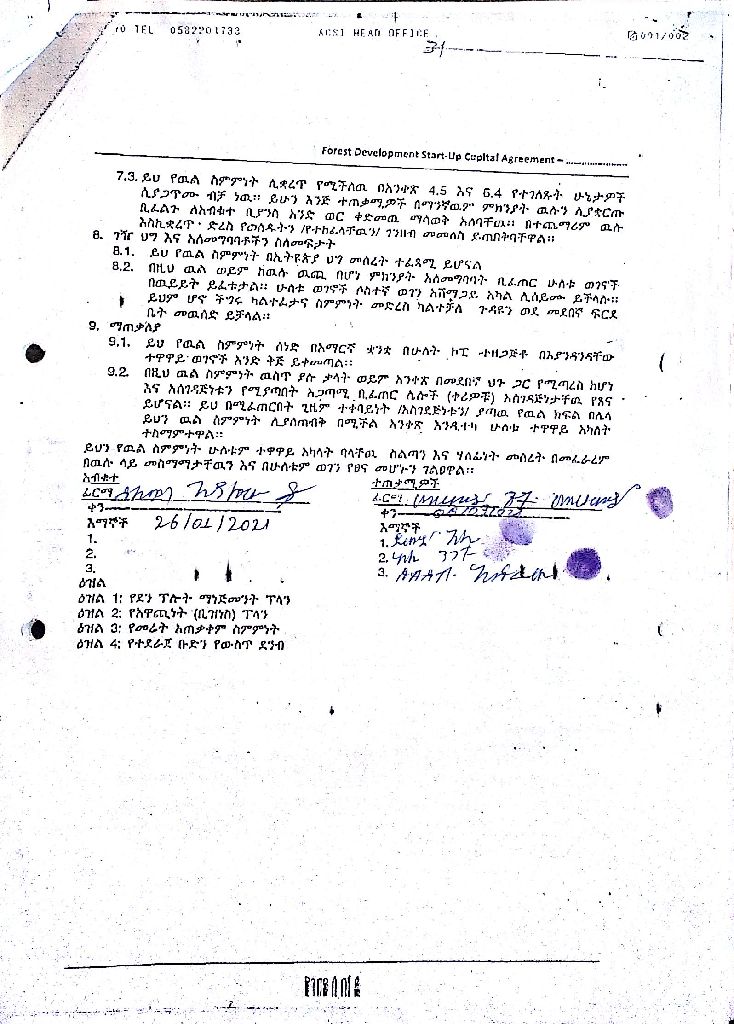 TEL 0582201733 ACSI HEAD OFFICE 001/002
Forest Development Start-Up Capital Agreement – ....................
7.3. ይህ የዉል ስምምነት ሊቋረጥ የሚችለዉ በአንቀጽ 4.5 እና 6.4 የተገለጹት ሁኔታዎች
ሲያጋጥሙ ብቻ ነዉ። ይሁን እንጅ ተጠቃሚዎች በማንኛዉም ምክንያት ዉሉን ሊያቋርጡ
ቢፈልጉ ለአብቁተ ቢያንስ አንድ ወር ቀድመዉ ማሳወቅ አለባቸዉ። በተጨማሪም ዉሉ
እስኪቋረጥ ድረስ የወሰዱትን /የተከፈላቸዉን/ ገንዘብ መመለስ ይጠበቅባቸዋል።
8. ገዥ ህግ እና አለመግባባቶችን ስለመፍታት
8.1. ይህ የዉል ስምምነት በኢትዩጵያ ህግ መሰረት ተፈጻሚ ይሆናል
8.2. በዚህ ዉል ወይም ከዉሉ ዉጪ በሆነ ምክንያት አለመግባባት ቢፈጠር ሁለቱ ወገኖች
በዉይይት ይፈቱታል። ሁለቱ ወገኖች ሶስተኛ ወገን አሸማጋይ አካል ሊሰይሙ ይችላሉ።
ይህም ሆኖ ችግሩ ካልተፈታና ስምምነት መድረስ ካልተቻለ ጉዳዩን ወደ መደበኛ ፍርድ
ቤት መዉሰድ ይቻላል።
9. ማጠቃለያ
9.1. ይህ የዉል ስምምነት ሰነድ በአማርኛ ቋንቋ በሁለት ኮፒ ተዘጋጅቶ በእያንዳንዳቸው
ተዋዋይ ወገኖች እንድ ቅጅ ይቀመጣል።
9.2. በዚህ ዉል ስምምነት ዉስጥ ያሉ ቃላት ወይም አንቀጽ በመደበኛ ህጉ ጋር የሚጣረስ ከሆነ
እና አስገዳጅነቱን የሚያጣበት አጋጣሚ ቢፈጠር ሌሎች (ቀሪዎቹ) አስገዳጅነታቸዉ የጸና
ይሆናል። ይህ በሚፈጠርበት ጊዜም ተቀባይነት /አስገደጅነቱን/ ያጣዉ የዉል ክፍል በሌላ
ይህን ዉል ስምምነት ሊያስጠብቅ በሚችል አንቀጽ እንዲተካ ሁለቱ ተዋዋይ አካለት
ተስማምተዋል።
ይህን የዉል ስምምነት ሁለቱም ተዋዋይ አካላት ባላቸዉ ስልጣን እና ሃላፊነት መሰረት በመፈራረም
በዉሉ ላይ መስማማታቸዉን እና በሁለቱም ወገን የፀና መሆኑን ገልፀዋል።
አብቁተ ተጠቃሚዎች
ፊርማ ፊርማ
ቀን ቀን
እማኞች 26/02/2021 እማኞች
1. 1.
2. 2.
3. 3.
ዕዝል
ዕዝል 1: የደን ፕሎት ማነጅመንት ፕላን
ዕዝል 2: የአዋጪነት (ቢዝነስ) ፕላን
ዕዝል 3: የመሬት አጠቃቀም ስምምነት
ዕዝል 4: የተደራጀ ቡድን የውስጥ ደንብ